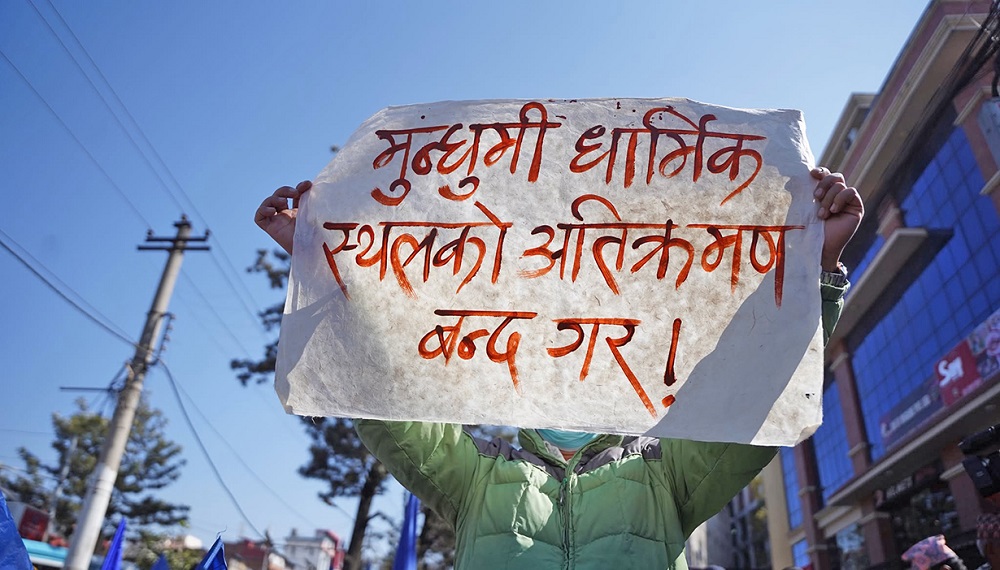 मुन्धुमी धार्मिक
स्थलको अतिक्रमण
बन्द गर!